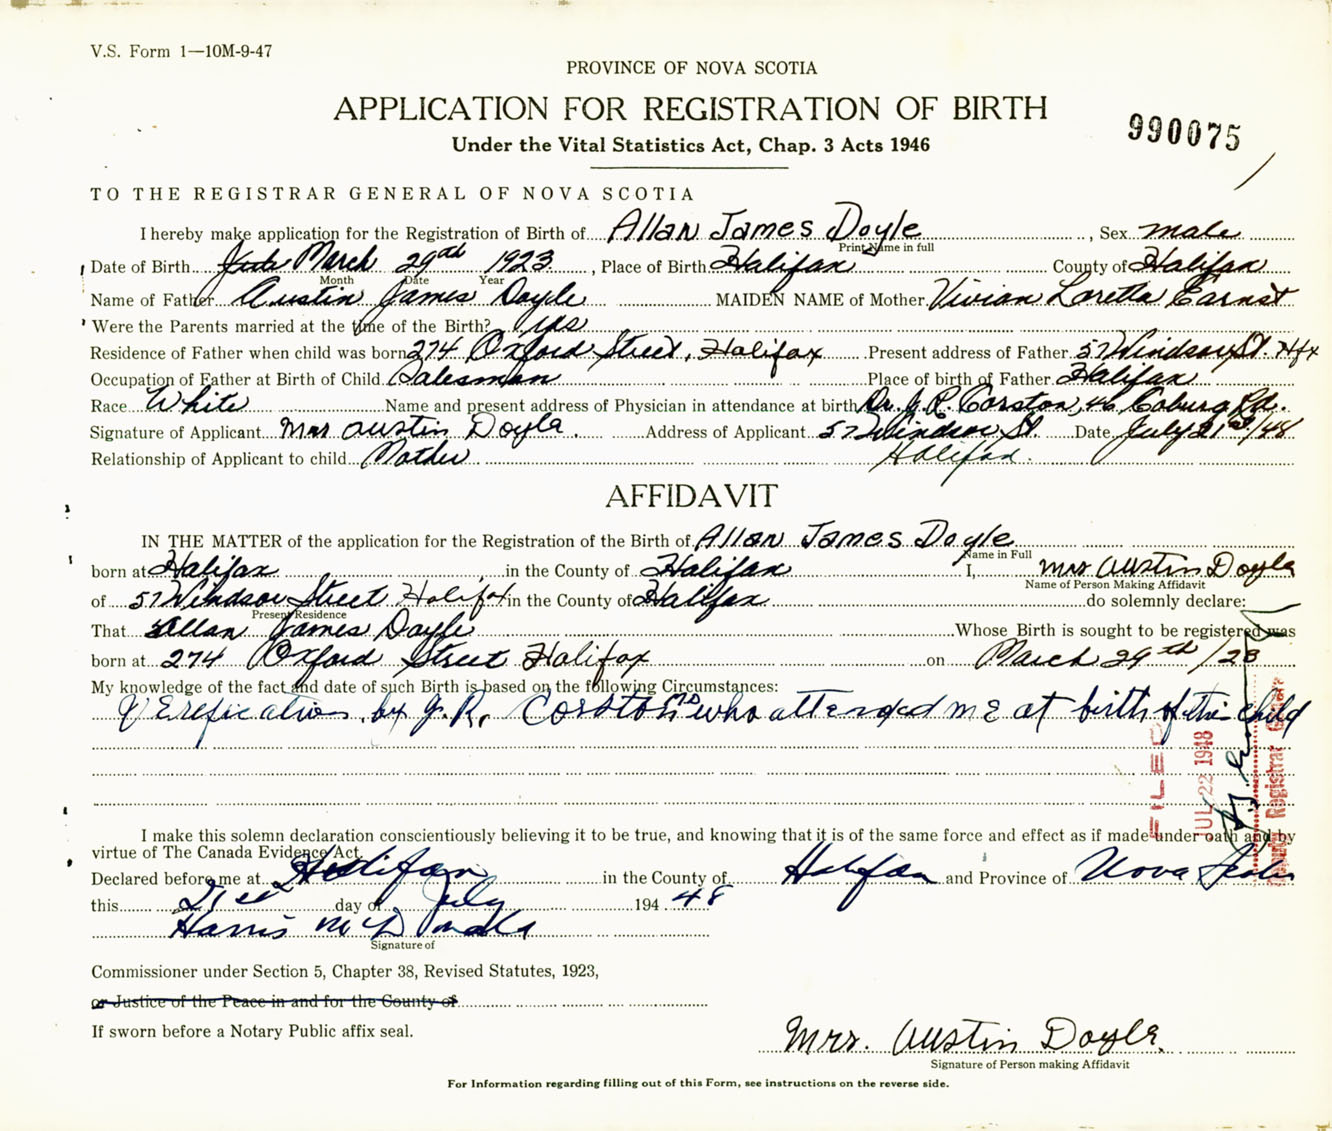 V.S. Form 1—10M-9-47
PROVINCE OF NOVA SCOTIA
APPLICATION FOR REGISTRATION OF BIRTH
990075
Under the Vital Statistics Act, Chap. 3 Acts 1946
TO THE REGISTRAR GENERAL OF NOVA SCOTIA
I hereby make application for the Registration of Birth of Allan James Doyle, Sex male
Print Name in full
Date of Birth March 29th 1923, Place of Birth Halifax County of Halifax
Month Date Year
Name of Father Austin James Doyle MAIDEN NAME of Mother Vivian Loretta Earnst
Were the Parents married at the time of the Birth? yes
Residence of Father when child was born 274 Oxford Street, Halifax Present address of Father 57 Windsor St. Hfx
Occupation of Father at Birth of Child Salesman Place of birth of Father Halifax
Race White Name and present address of Physician in attendance at birth Dr. J. R. Corston, 46 Coburg Rd.
Signature of Applicant Mrs Austin Doyle. Address of Applicant 57 Windsor St. Date July 21st/48
Relationship of Applicant to child Mother Halifax.
AFFIDAVIT
IN THE MATTER of the application for the Registration of the Birth of Allan James Doyle
Name in Full
born at Halifax, in the County of Halifax I, Mrs Austin Doyle
Name of Person Making Affidavit
of 57 Windsor Street Halifax in the County of Halifax do solemnly declare:
Present Residence
That Allan James Doyle Whose Birth is sought to be registered was
born at 274 Oxford Street Halifax on March 29th/23
My knowledge of the fact and date of such Birth is based on the following Circumstances:
Verefication by J. R. Corston MD who attended me at birth of this child
FILED
JUL 22 1948
Deputy Registrar General
I make this solemn declaration conscientiously believing it to be true, and knowing that it is of the same force and effect as if made under oath and by
virtue of The Canada Evidence Act.
Declared before me at Halifax in the County of Halifax and Province of Nova Scotia
this 21st day of July 194 48
Harris McDonald
Signature of
Commissioner under Section 5, Chapter 38, Revised Statutes, 1923,
or Justice of the Peace in and for the County of
If sworn before a Notary Public affix seal.
Mrs. Austin Doyle.
Signature of Person making Affidavit
For Information regarding filling out of this Form, see instructions on the reverse side.